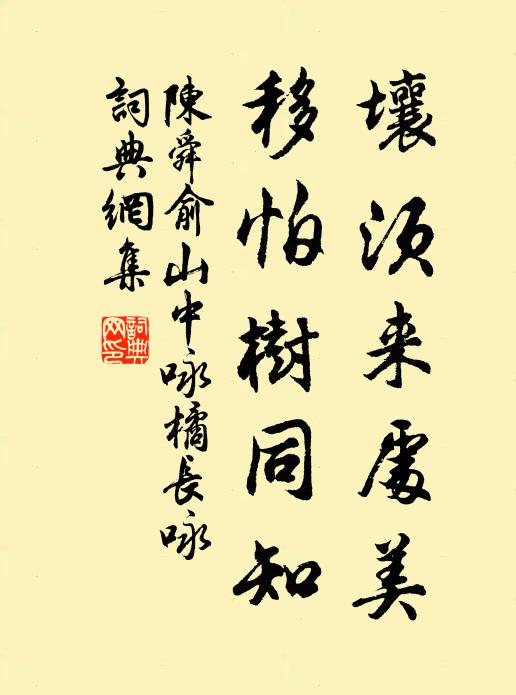 壤須来處美
移怕樹同知
陳舜俞山中咏橘長咏
詞典網集
詞典
网印